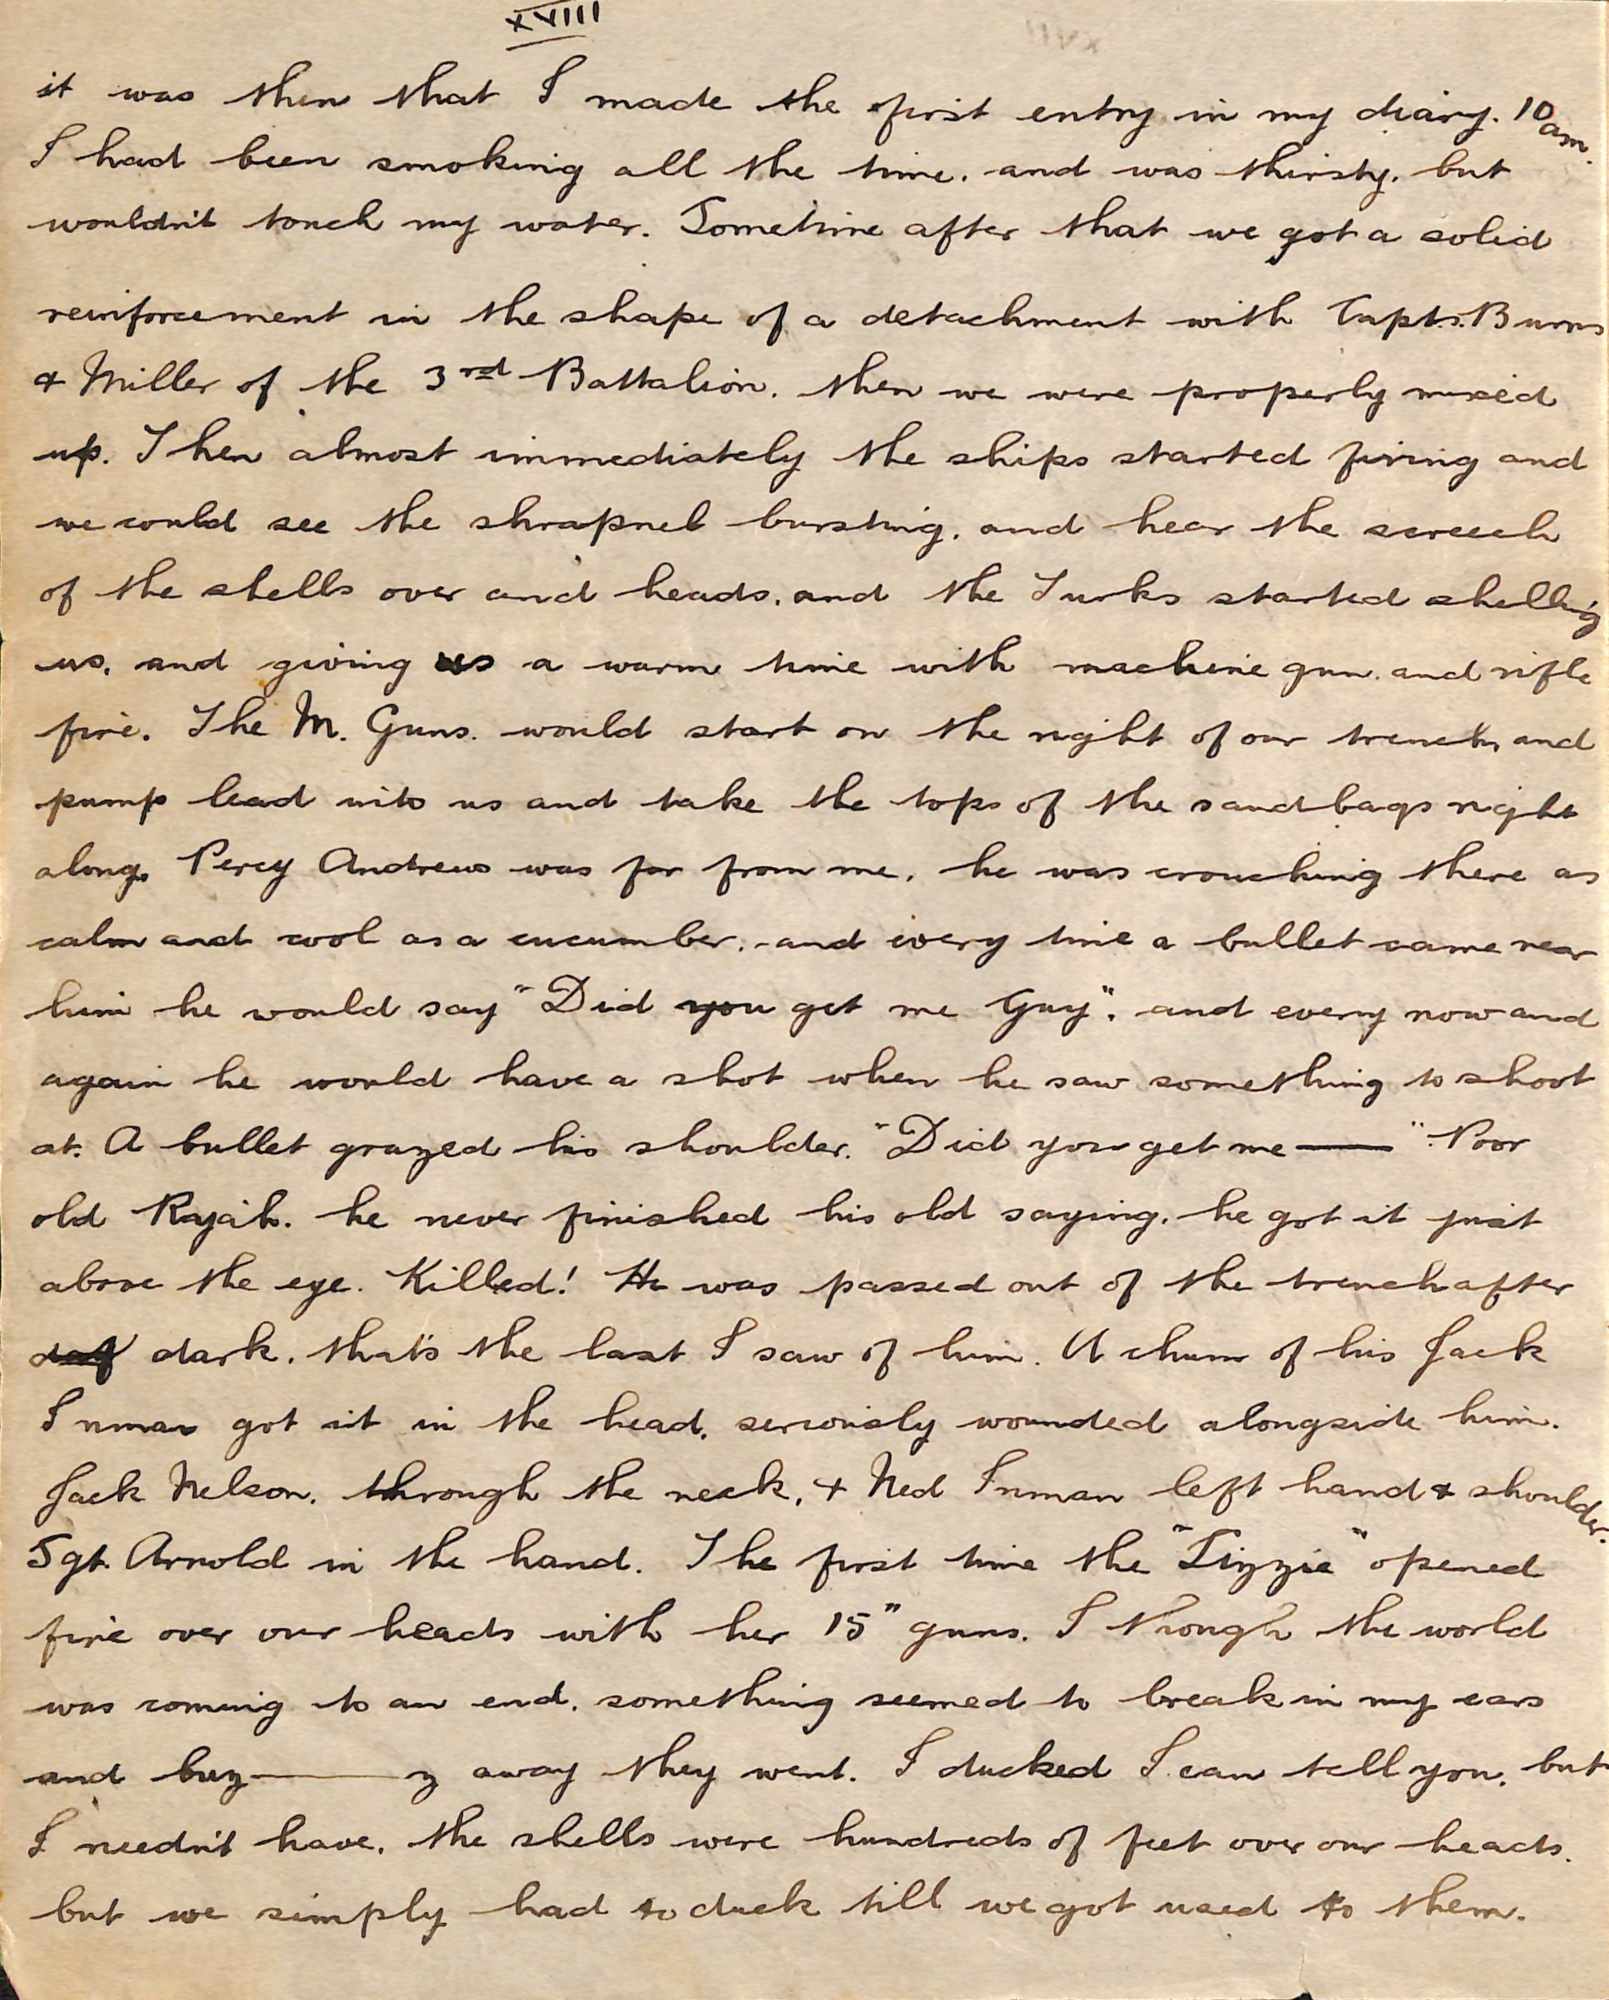 XVIII
it was then that I made the first entry in my diary. 10 am.
I had been smoking all the time. and was thirsty. but
wouldn't touch my water. Sometime after that we got a solid
reinforcement in the shape of a detachment with Capts. Burns
& Miller of the 3rd Battalion. then we were properly mixed
up. Then almost immediately the ships started firing and
we could see the shrapnel bursting. and hear the screech
of the shells over and heads. and the Turks started shelling
us. and giving us a warm time with machine gun. and rifle
fire. The M. Guns. would start on the right of our trench, and
pump lead into us and take the tops of the sandbags right
along. Percy Andrews was far from me. he was crouching there as
calm and cool as a cucumber. and every time a bullet came near
him he would say "Did you get me Guy". and every now and
again he would have a shot when he saw something to shoot
at. A bullet grazed his shoulder. "Did you get me ——" Poor
old Rajah. he never finished his old saying. he got it just
above the eye. Killed! He was passed out of the trench after
dark. that's the last I saw of him. A chum of his Jack
Inman got it in the head. seriously wounded alongside him.
Jack Nelson. through the neck. & Ned Inman left hand & shoulder.
Sgt. Arnold in the hand. The first time the "Lizzie" opened
fire over our heads with her 15" guns. I though the world
was coming to an end. something seemed to break in my ears
and buz——z away they went. I ducked I can tell you. but
I needn't have. the shells were hundreds of feet over our heads.
but we simply had to duck till we got used to them.